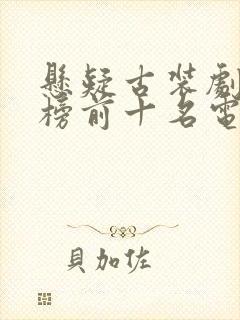 懸疑古裝劇
榜前十名電
貝加佐